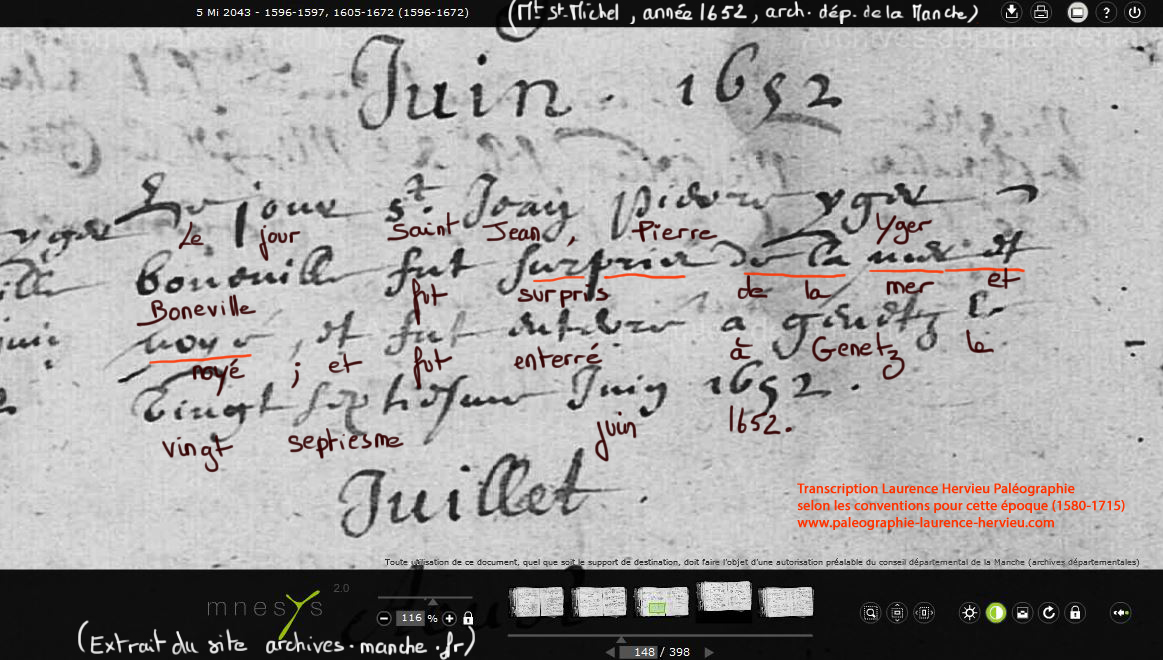 5 Mi 2043 - 1596-1597, 1605-1672 (1596-1672)
(Mt St-Michel, année 1652, arch. dép. de la Manche)
Juin . 1652
Le jour st. Jean pierre yger
yger
Le jour Saint Jean, Pierre Yger
boneville fut surprise de la mer et
Boneville fut surpris de la mer et
noye, et fut enterre a genetz le
noyé ; et fut enterré à Genetz le
vingt septiesme Juin 1652.
vingt septiesme juin 1652.
Juillet.
Transcription Laurence Hervieu Paléographie
selon les conventions pour cette époque (1580-1715)
www.paleographie-laurence-hervieu.com
Toute utilisation de ce document, quel que soit le support de destination, doit faire l'objet d'une autorisation préalable du conseil départemental de la Manche (archives départementales)
mnesys 2.0
116 %
(Extrait du site archives.manche.fr)
148 / 398